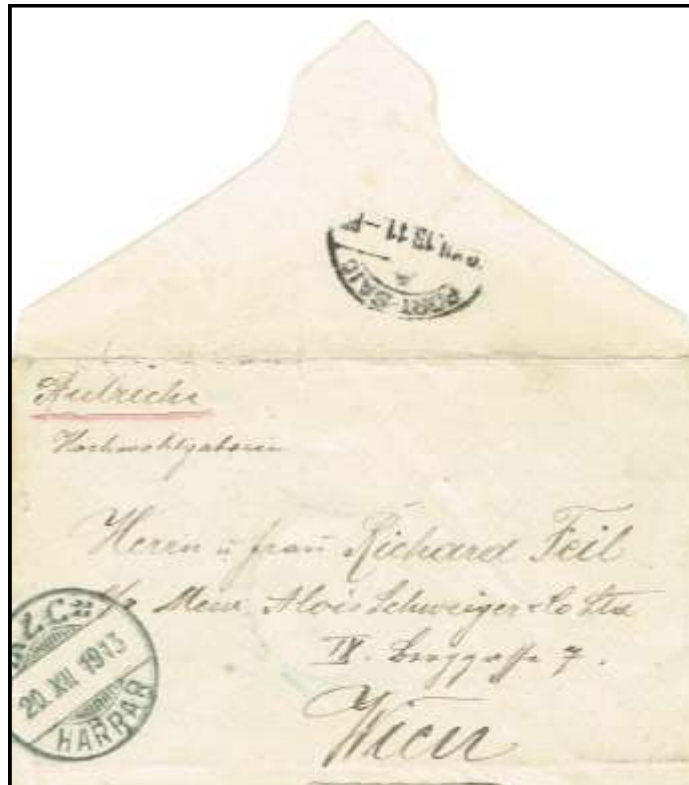 PORT-SAID
Autriche
Hochwohlgeboren
Herrn u frau Richard Feil
c/o Alois Schweiger & Co Ltd
IX. Berggasse 7.
Wien
20 XII 1913
HARRAR